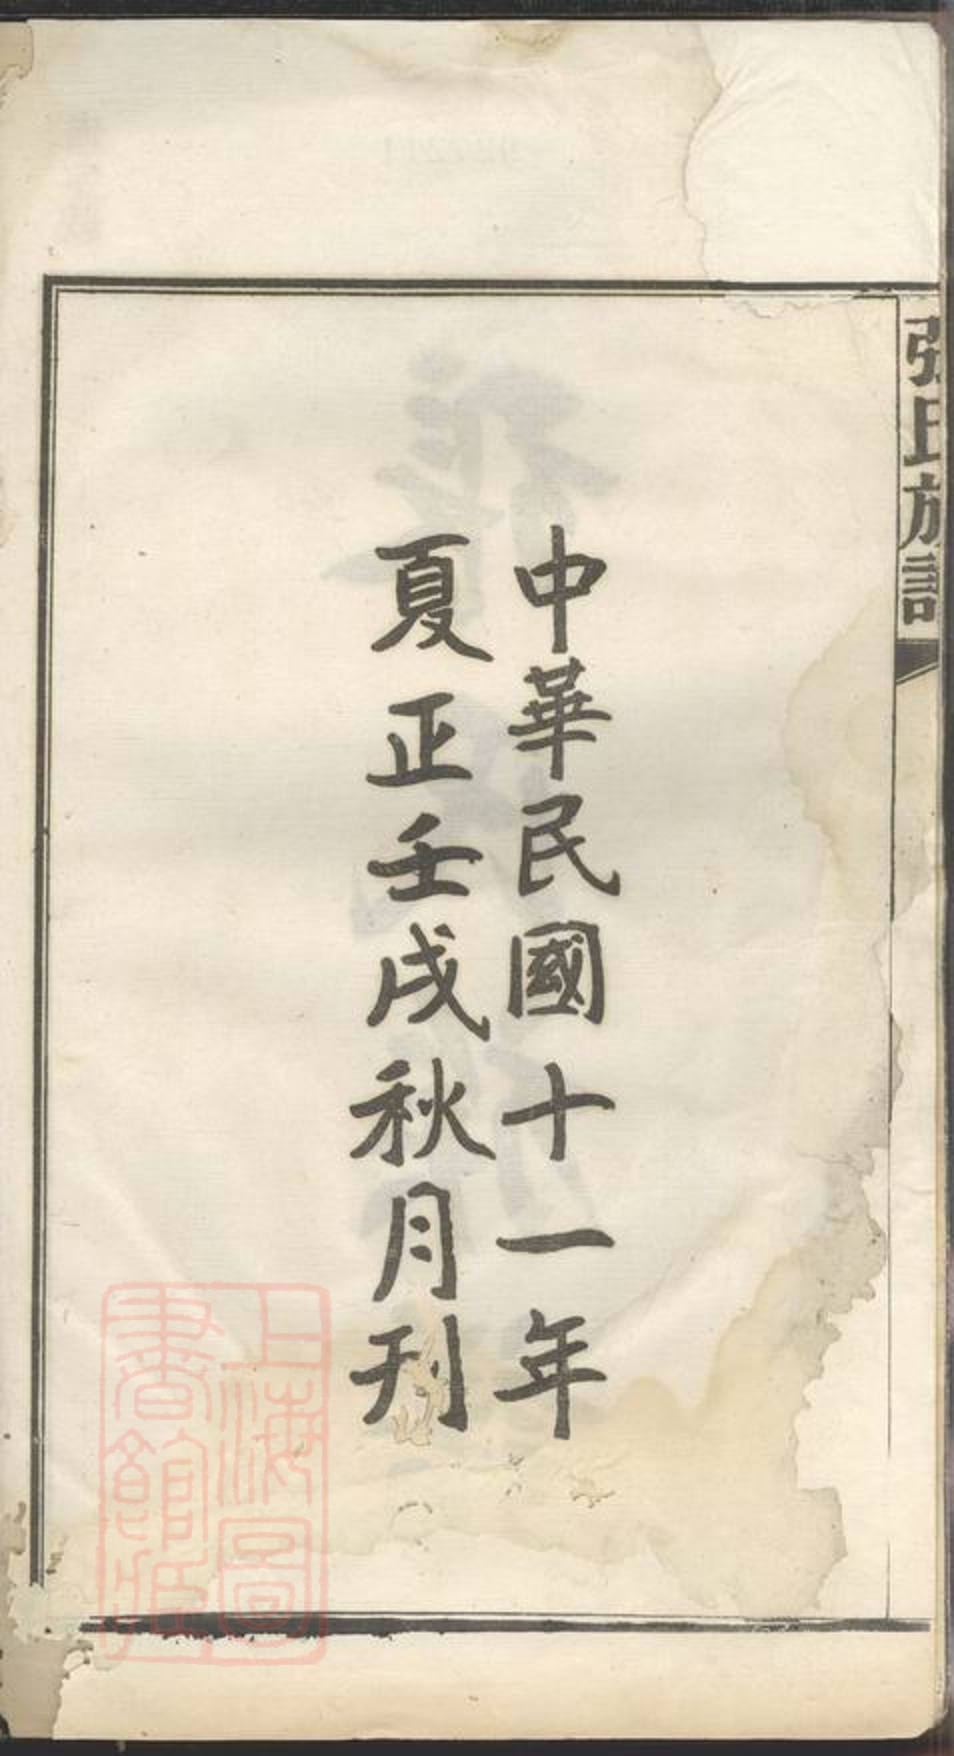 張氏族譜
中華民國十一年
夏正壬戌秋月刊
上海圖
書館藏